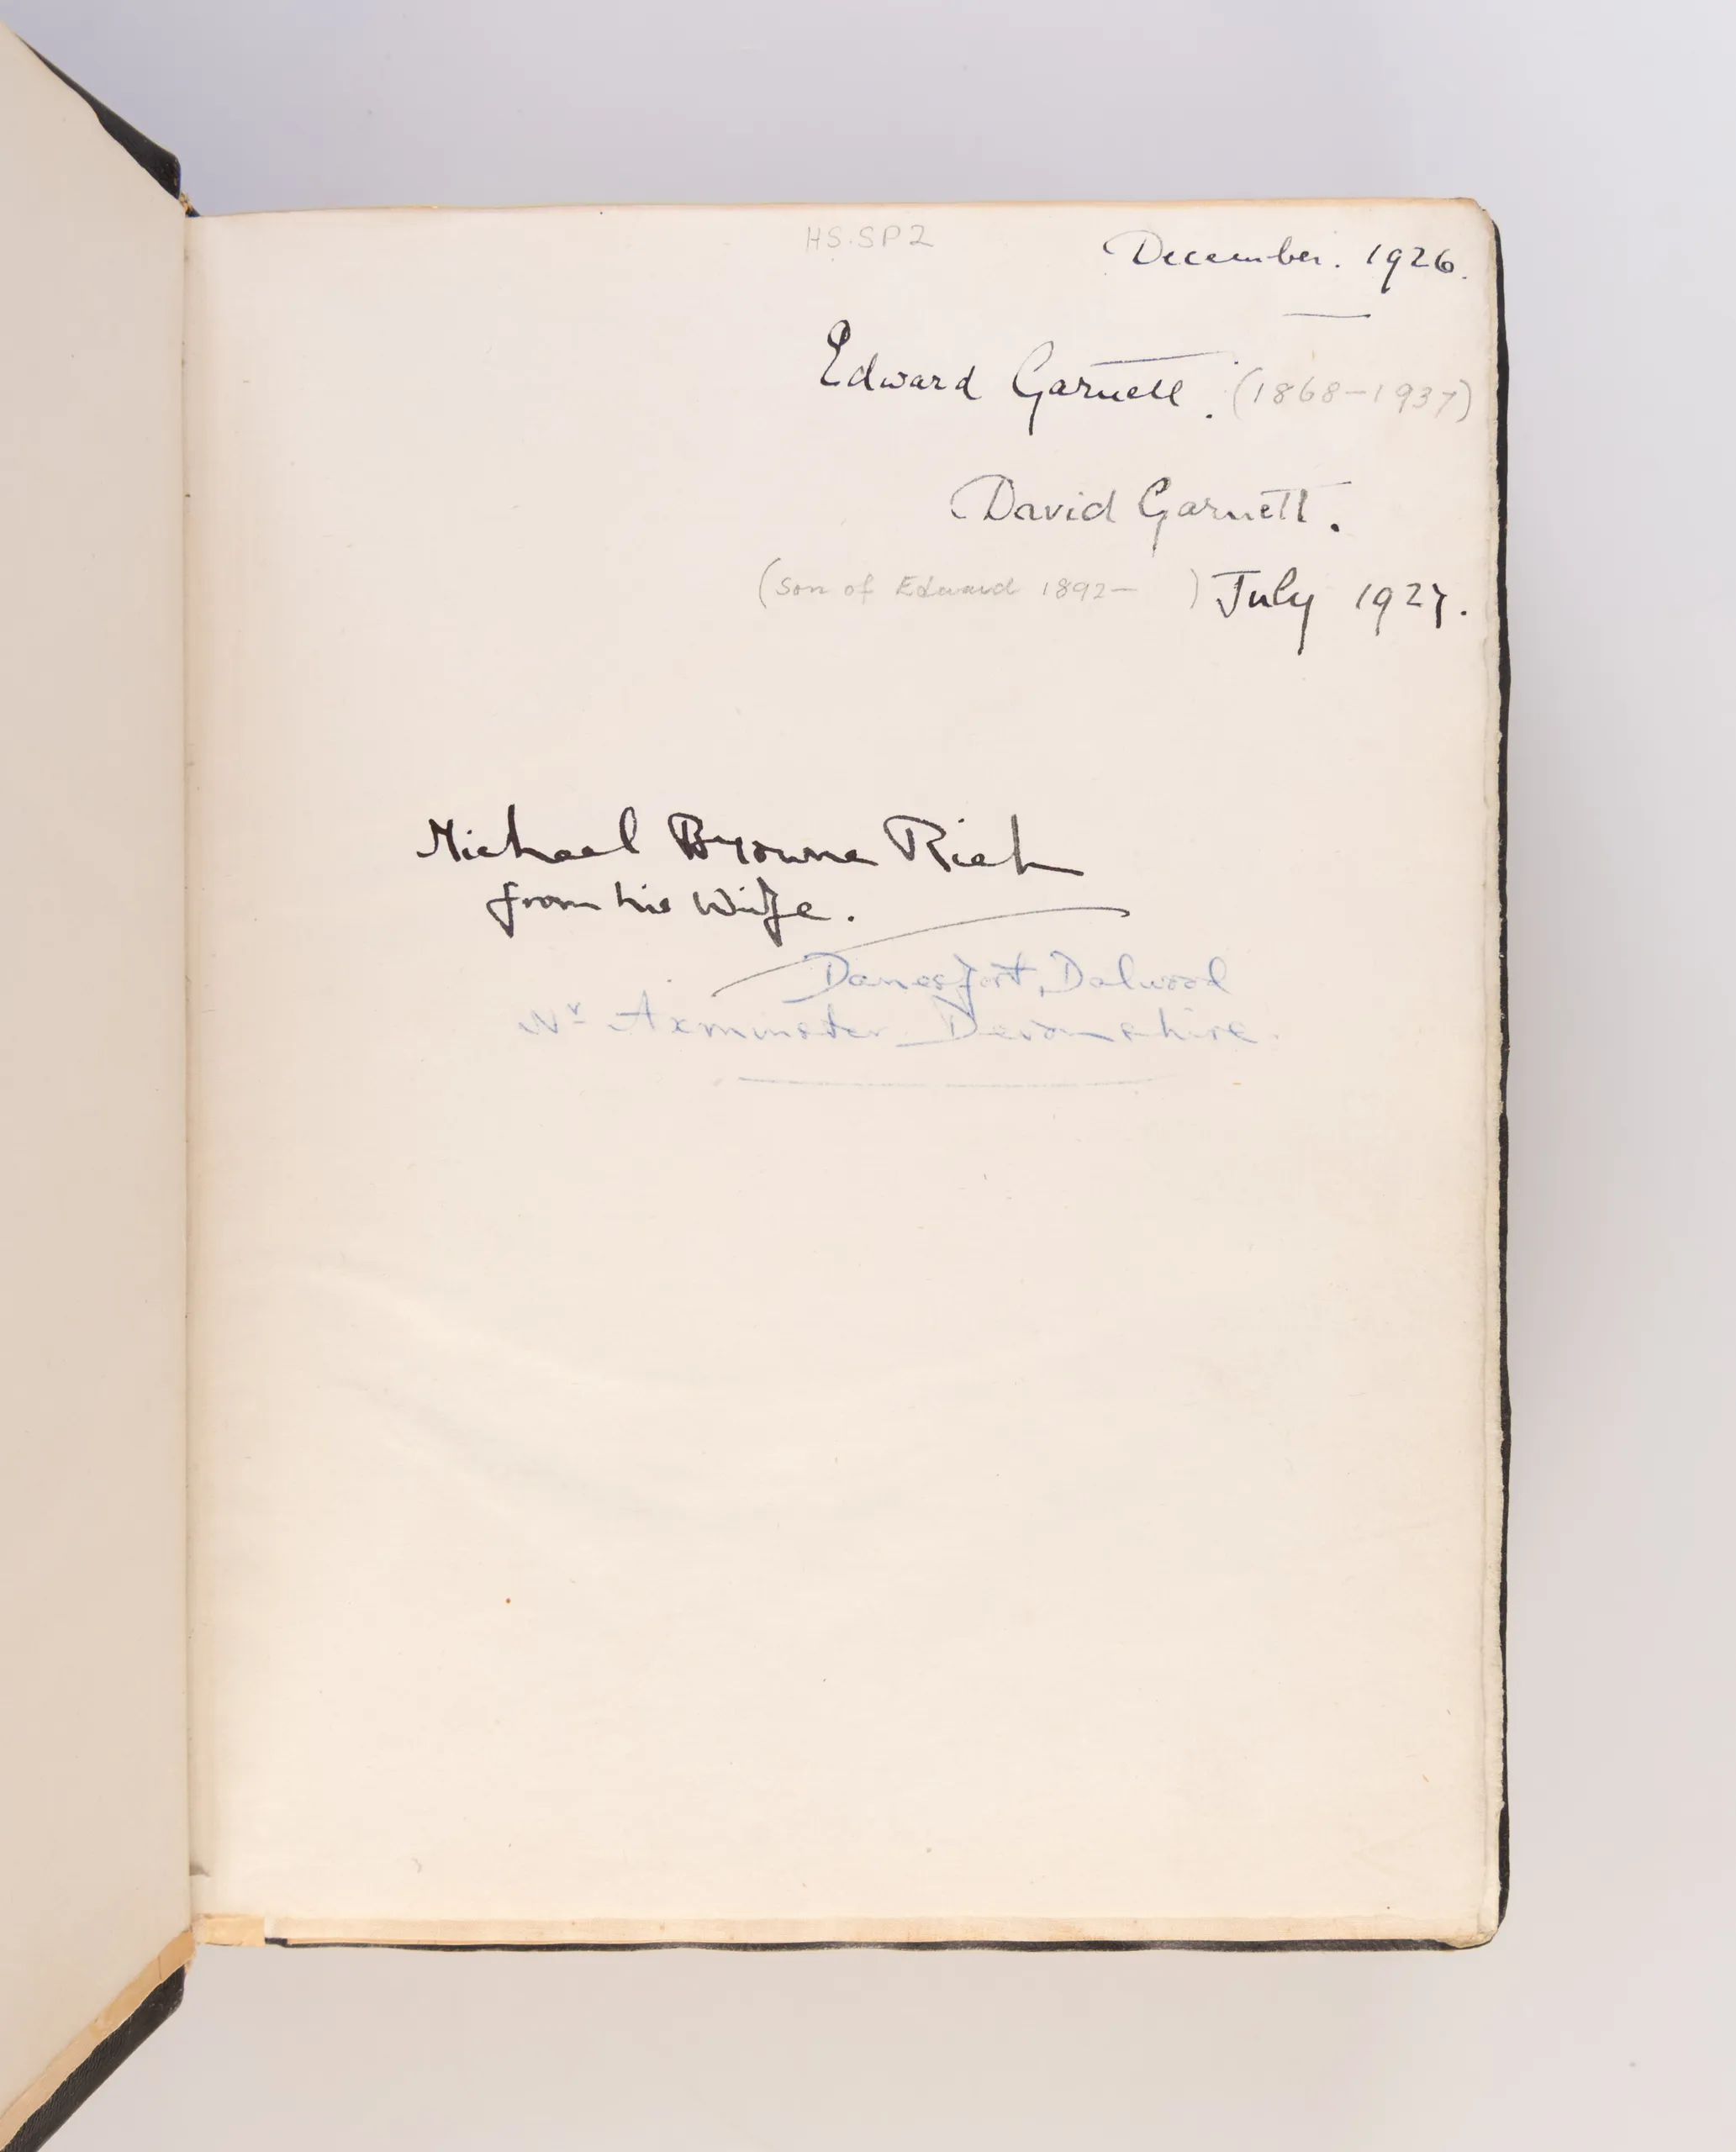 HS.SP2
December. 1926.
Edward Garnett. (1868-1937)
David Garnett.
(Son of Edward 1892- ) July 1927.
Michael Browne Rich
from his Wife.
Danesfort, Dalwood
Nr Axminster Devonshire.